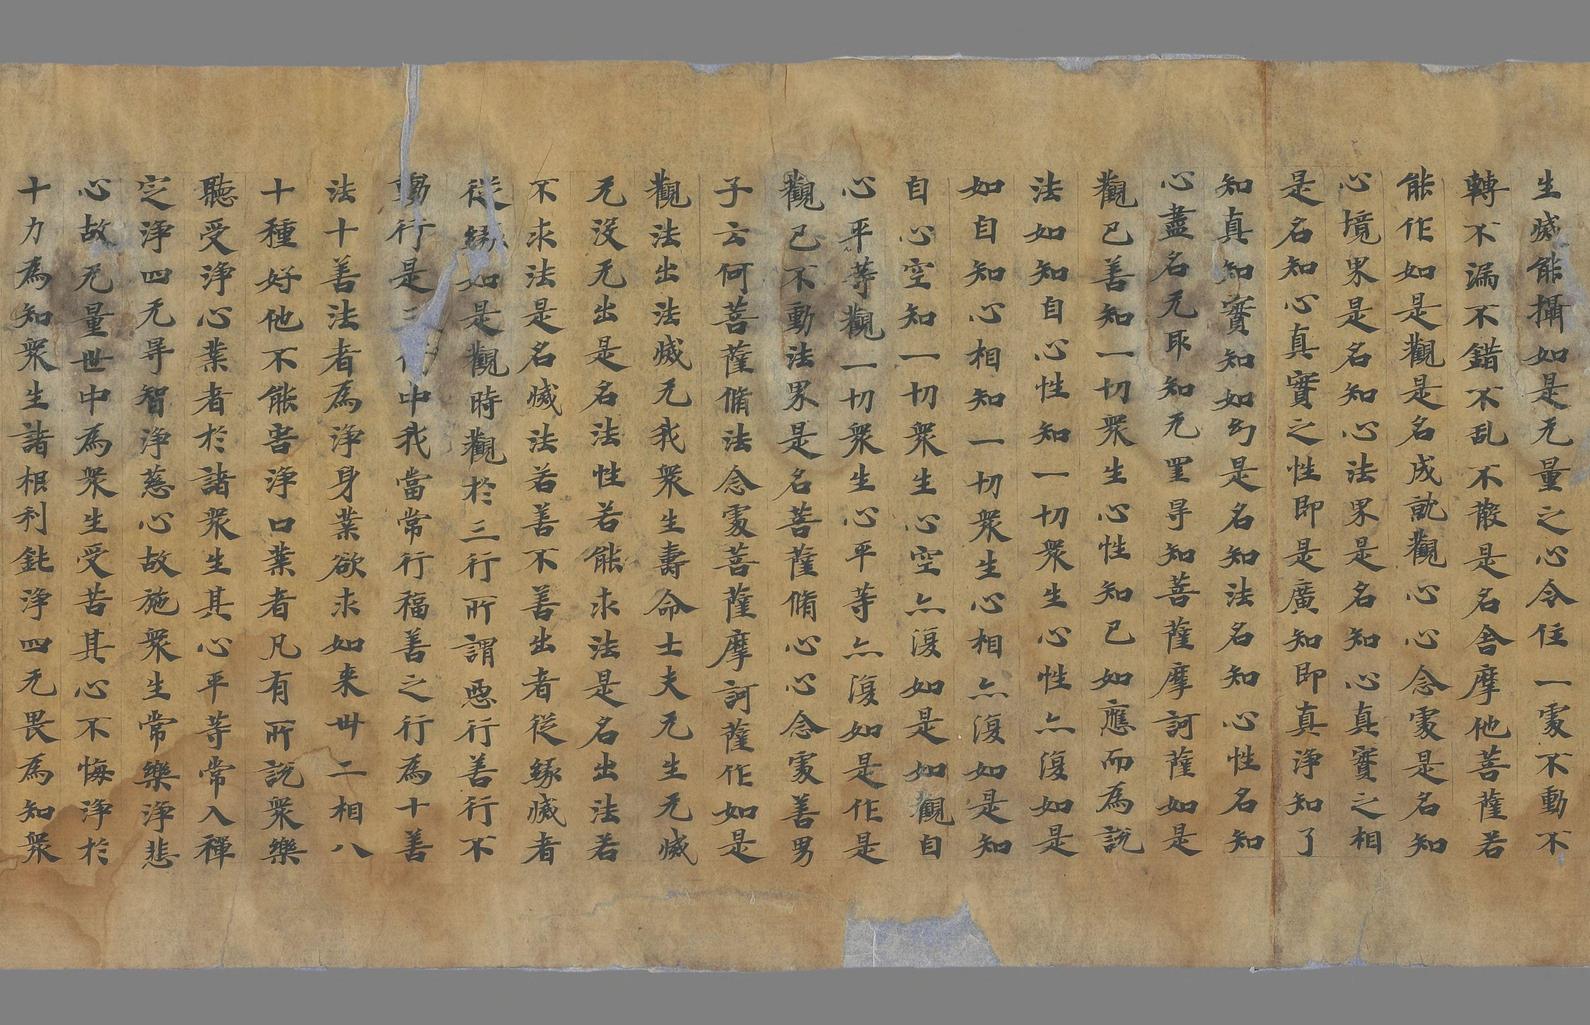 生滅能攝如是无量之心令住一處不動不
轉不漏不錯不乱不散是名舍摩他菩薩若
能作如是觀是名成就觀心心念處是名知
心境界是名知心法界是名知心真實之相
是名知心真實之性即是廣知即真淨知了
知真知實知如幻是名知法名知心性名知
心盡名无取知无罣导知菩薩摩訶薩如是
觀已善知一切衆生心性知已如應而為說
法如知自心性知一切衆生心性亦復如是
如自知心相知一切衆生心相亦復如是知
自心空知一切衆生心空亦復如是如觀自
心平等觀一切衆生心平等亦復如是作是
觀已不動法界是名菩薩脩心心念處善男
子云何菩薩脩法念處菩薩摩訶薩作如是
觀法出法滅无我衆生壽命士夫无生无滅
无沒无出是名法性若能求法是名出法若
不求法是名滅法若善不善出者從緣滅者
從緣如是觀時觀於三行所謂惡行善行不
動行是三行中我當常行福善之行為十善
法十善法者為淨身業欲求如来卅二相八
十種好他不能害淨口業者凡有所說衆樂
聽受淨心業者於諸衆生其心平等常入禪
定淨四无导智淨慈心故施衆生常樂淨悲
心故无量世中為衆生受苦其心不悔淨於
十力為知衆生諸根利鈍淨四无畏為知衆